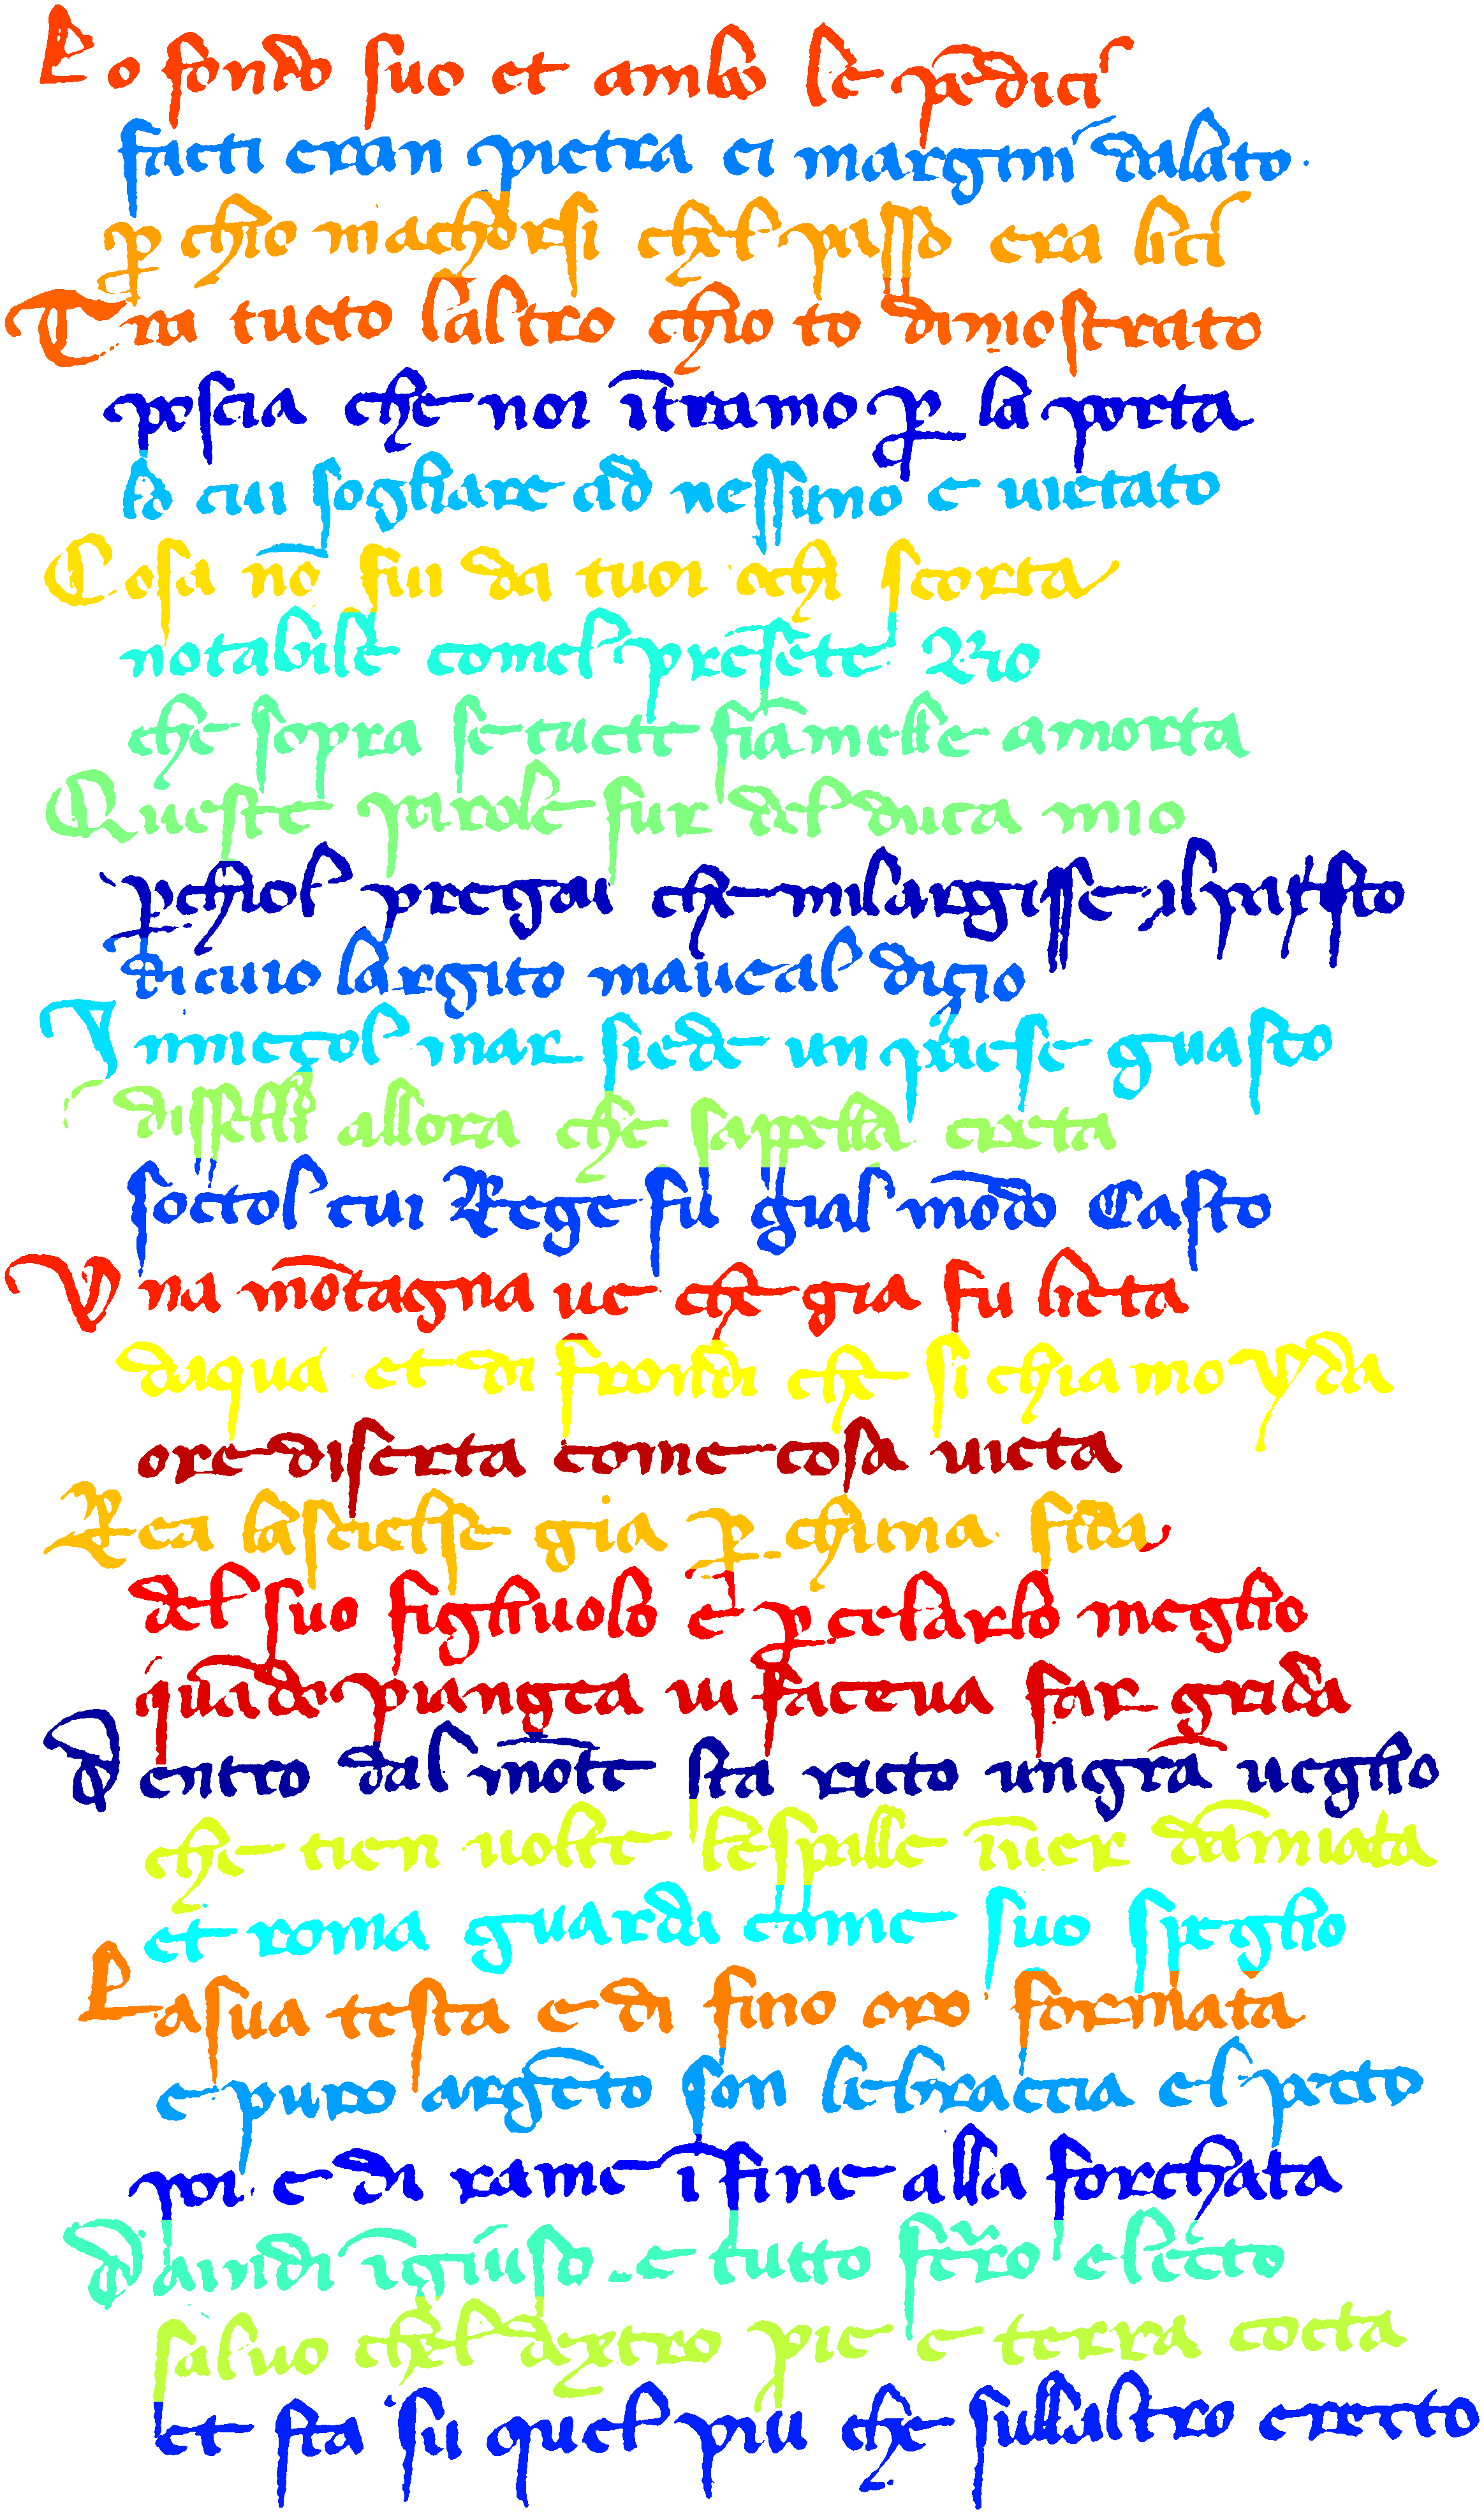 Lo fondo suo et ambo le p̄dicī
facti eran pietra ei margini dallato.
ꝑ chio macchorsi chel passo era lici
Tra tucto laltro chio to dimostrato
poscia che noi ītramo ꝑ la porta
lo cui sogliare ad nessuno e negato
Cosa nō fu da tuoi ochi scorta
notabile come el presēte rio
che sopra se tucte fiamelle amorta
Queste parole fur del duca mio
ꝑchiol pregai che mi largisse il pasto
di cui largito maueval disio
In mezol mar siede un paese guasto
disselli allora che sappella creta
soctol cui rege fu gial mōdo casto
Una mōtagna ve che gia fu lieta
dacqua et di frondi che si chiamo yda
ora diserta come cosa vieta
Rea la scielse gia ꝑ chuna fida
del suo figliuolo et ꝑ celarlo meglio
quādo piangea vi facea far grida
Dentro dal mōte sta ricto un grā veglio
che tien volte le spalle īver damiata
et roma guarda come suo speglio
La sua testa e di fino oro formata
e puro argēto son le braccia el pecto
poi e di rame ī fine alla forchata
Da indi īgiuso e tucto ferro electo
salvo chel dextro pie e terra cocta
et sta su quel piu che su laltro erecto